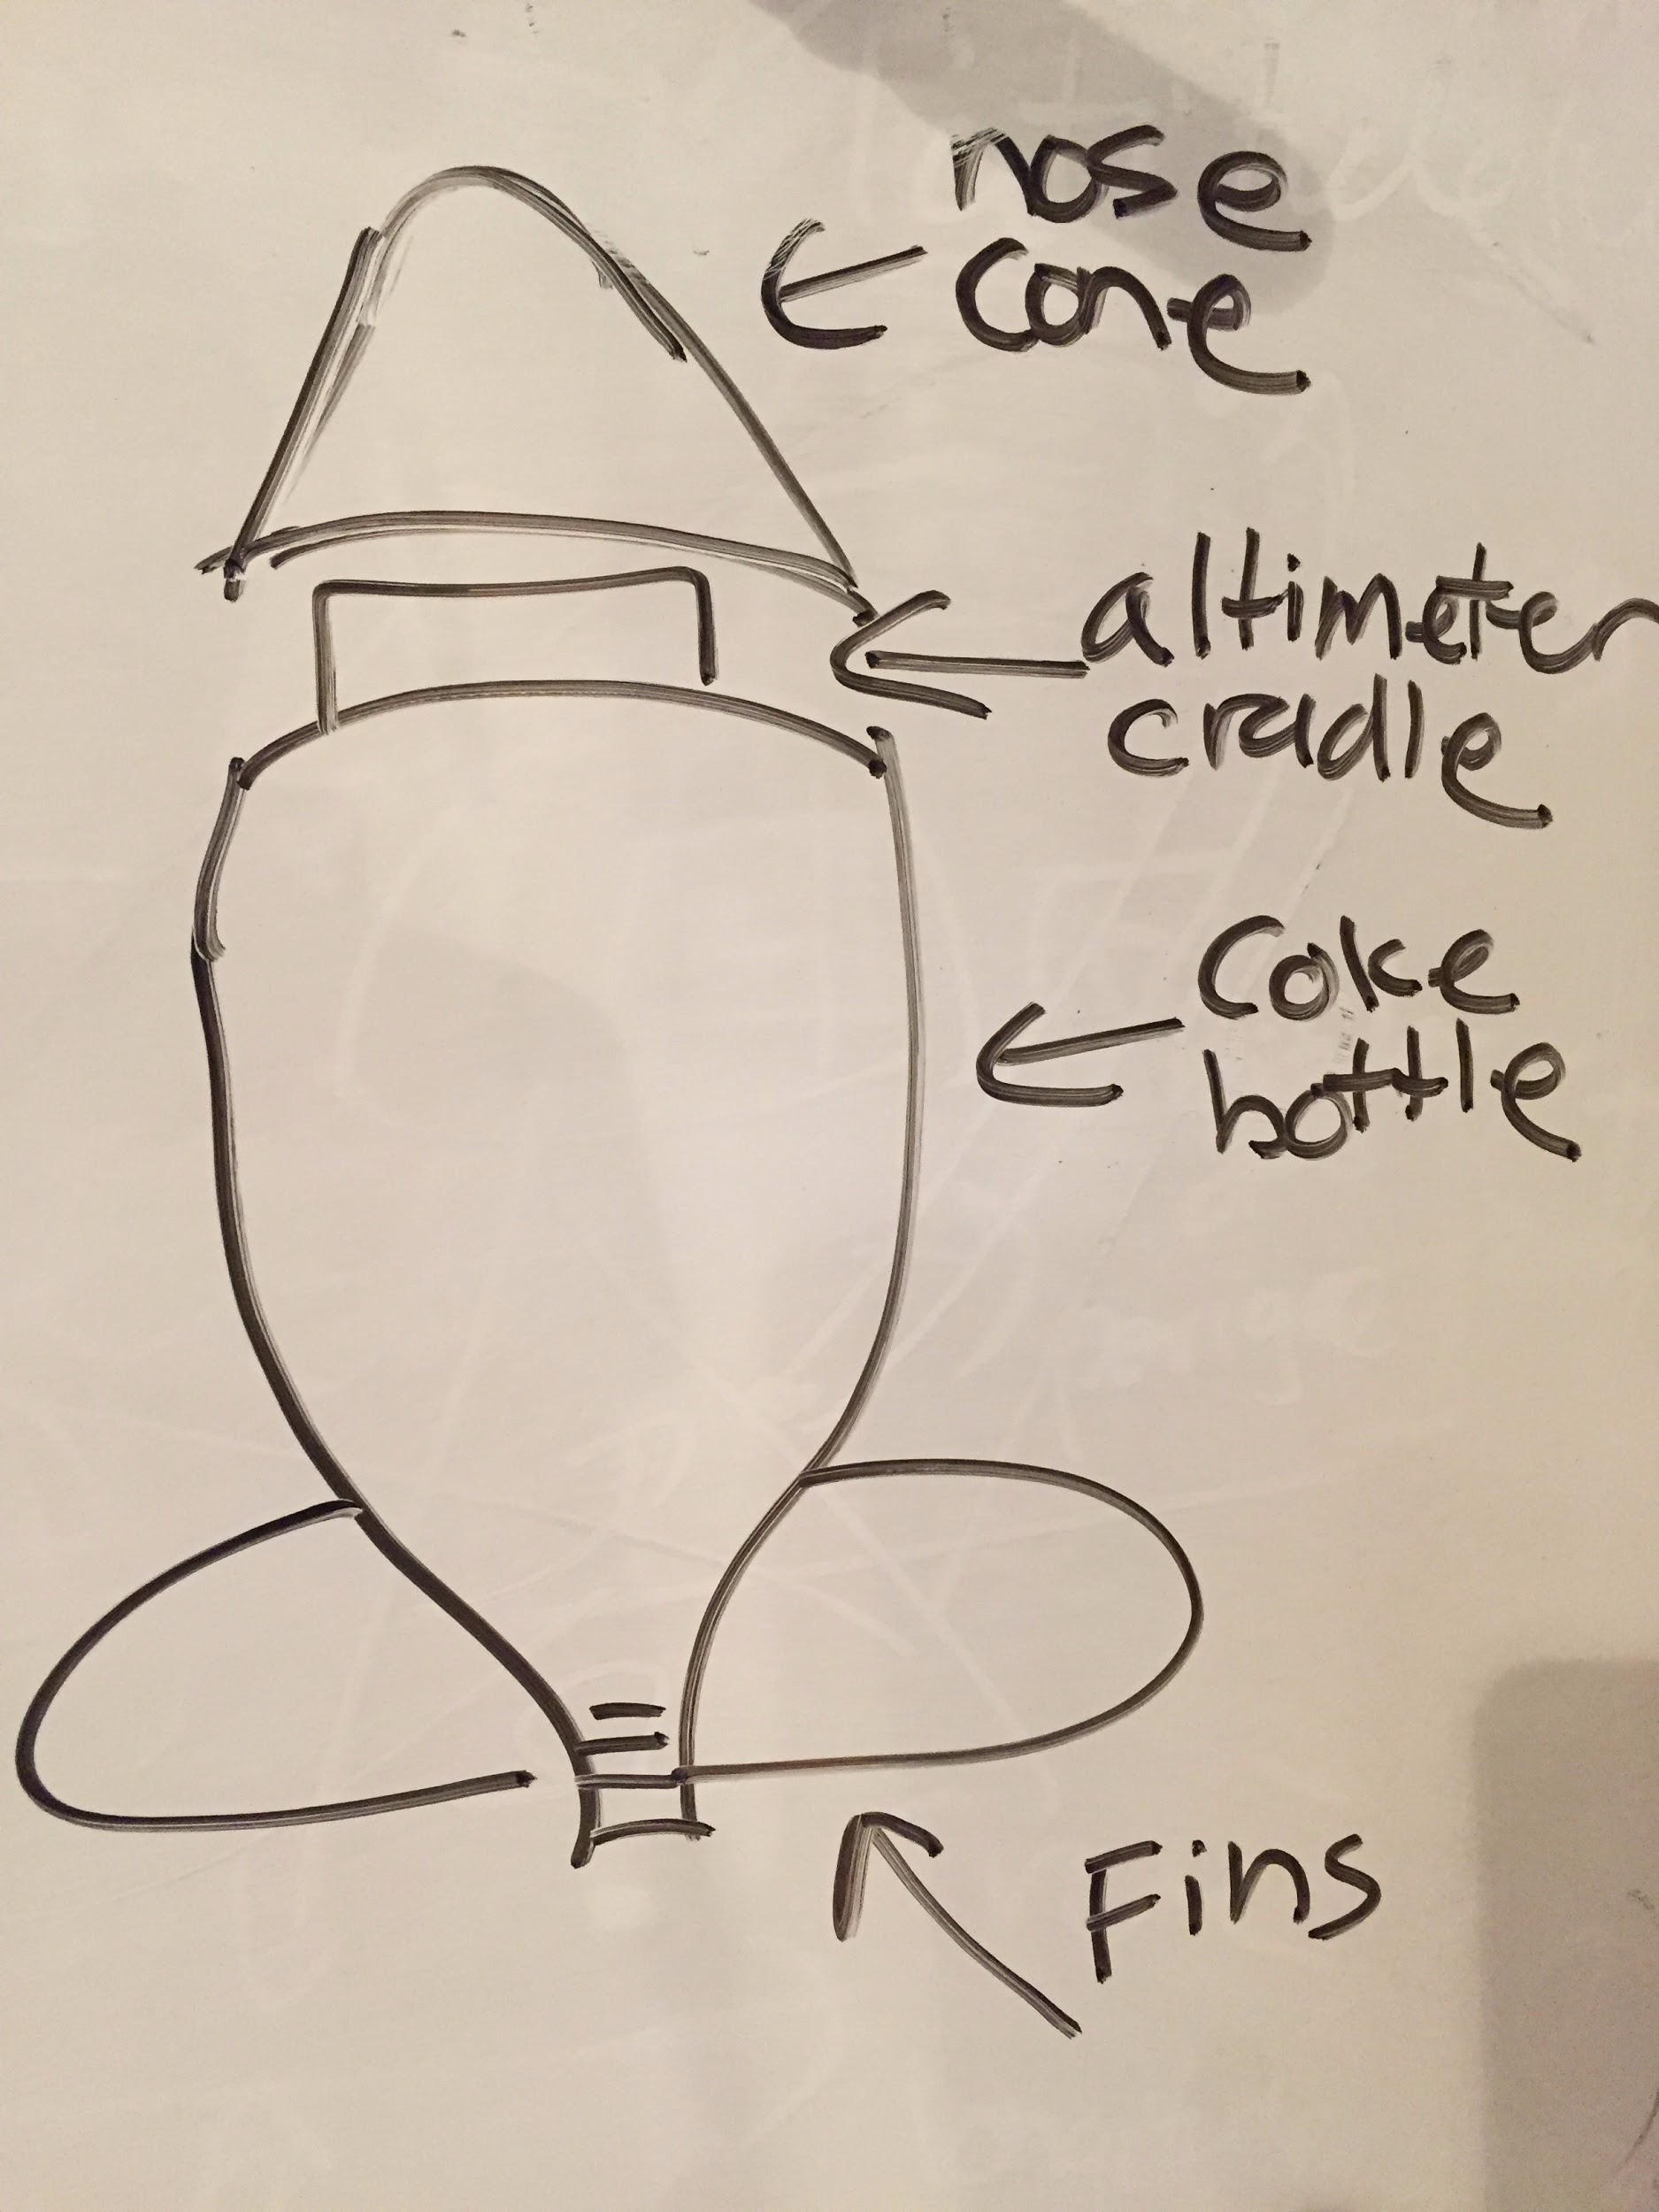 nose
cone
altimeter
cradle
Coke
bottle
Fins